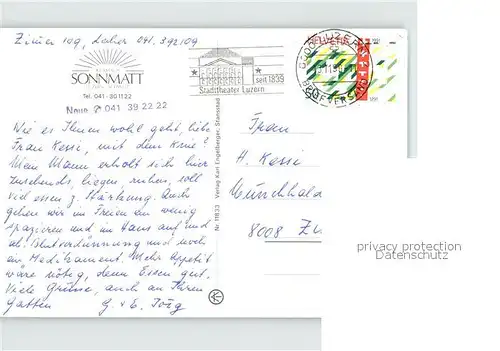 Zimmer 109, Luzern 041. 392109
SONNMATT
Tel. 041 - 30 11 22
Neue ✆ 041 39 22 22
seit 1839
Stadttheater Luzern
HELVETIA
BRIEFVERSAND
Verlag Karl Engelberger, Stansstad
Nr. 11833
Wie es Ihnen wohl geht, liebe
Frau Kessi, mit dem Knie?
Mein Mann erholt sich hier
zusehends, liegen, ruhen, soll
viel essen z. Stärkung. Auch
gehen wir im Freien ein wenig
spazieren und im Haus auf und
ab. Blutverdünnung und noch
ein Medikament. Mehr Appetit
wäre nötig, denn Essen gut.
Viele Grüsse, auch an Ihren
Gatten G. & E. Torg
Frau
H. Kessi
Münchhal
8008 Zü
privacy protection
Datenschutz